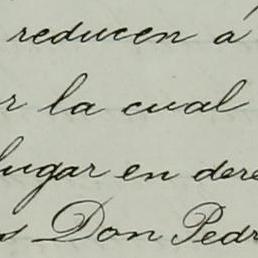 reducen á
r la cual
lugar en dere
s Don Pedr